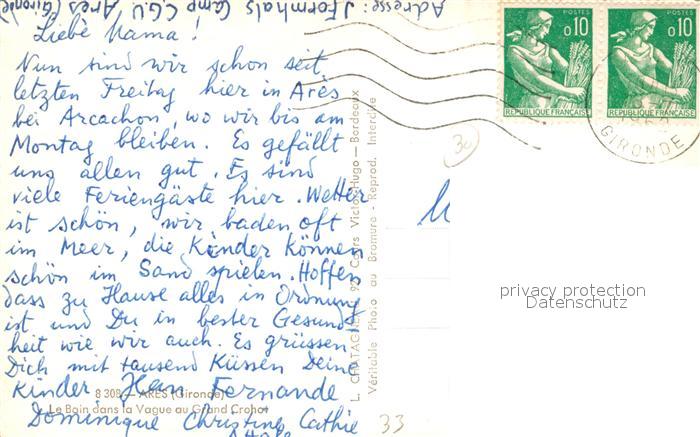 Adresse: J. Formhals Camp C.G.U. Arès (Gironde)
Liebe Mama!
Nun sind wir schon seit
letzten Freitag hier in Arès
bei Arcachon, wo wir bis am
Montag bleiben. Es gefällt
uns allen gut. Es sind
viele Feriengäste hier. Wetter
ist schön, wir baden oft
im Meer, die Kinder können
schön im Sand spielen. Hoffen
dass zu Hause alles in Ordnung
ist und Du in bester Gesund-
heit wie wir auch. Es grüssen
Dich mit tausend Küssen Deine
Kinder Jean Fernande
Dominique Christine Cathie
8 308 — ARÈS (Gironde)
Le Bain dans la Vague au Grand Crohot
L. CHATAGNEAU, 92 Cours Victor-Hugo — Bordeaux
Véritable Photo au Bromure - Reprod. Interdite
POSTES
0,10
REPUBLIQUE FRANÇAISE
POSTES
0,10
REPUBLIQUE FRANÇAISE
GIRONDE
30
M
privacy protection
Datenschutz
33